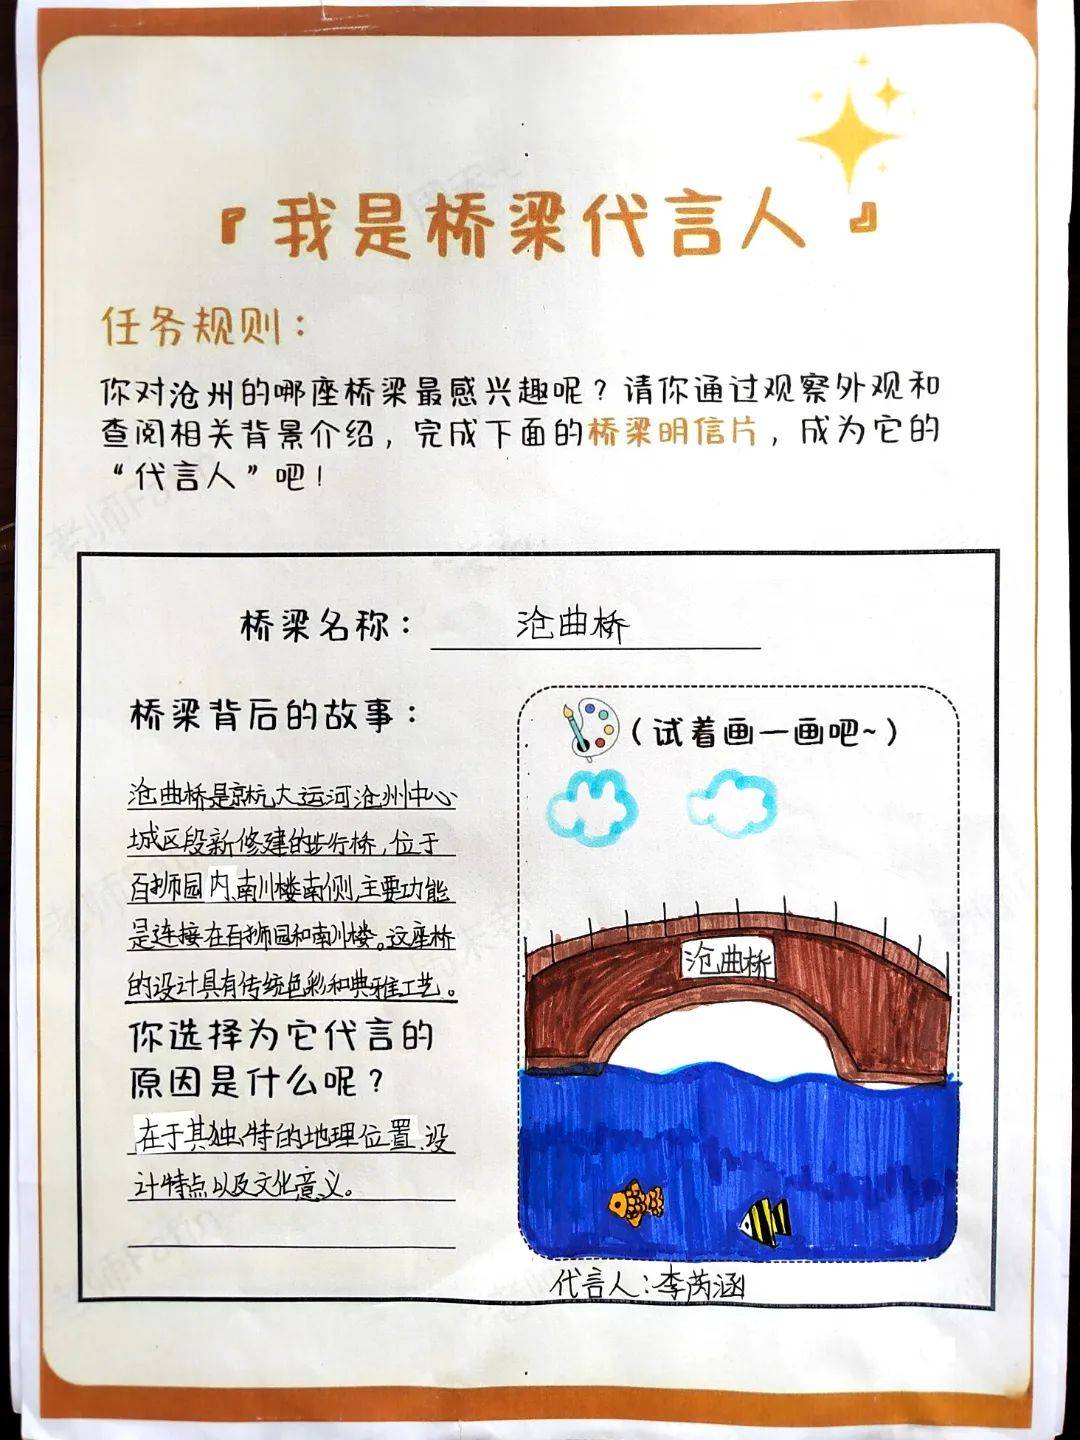 『我是桥梁代言人』
任务规则：
你对沧州的哪座桥梁最感兴趣呢？请你通过观察外观和
查阅相关背景介绍，完成下面的桥梁明信片，成为它的
“代言人”吧！
桥梁名称：沧曲桥
桥梁背后的故事：
沧曲桥是京杭大运河沧州中心
城区段新修建的步行桥，位于
百狮园内、南川楼南侧，主要功能
是连接在百狮园和南川楼。这座桥
的设计具有传统色彩和典雅工艺。
你选择为它代言的
原因是什么呢？
在于其独特的地理位置、设
计特点以及文化意义。
（试着画一画吧~）
沧曲桥
代言人：李芮涵